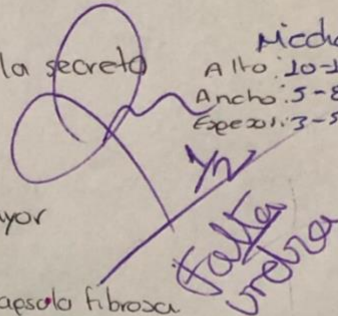 Medi
la secreto
Alto: 10-1
Ancho: 5-8
Espesor: 3-5
1/2
yor
Falta
uretra
apsula fibrosa